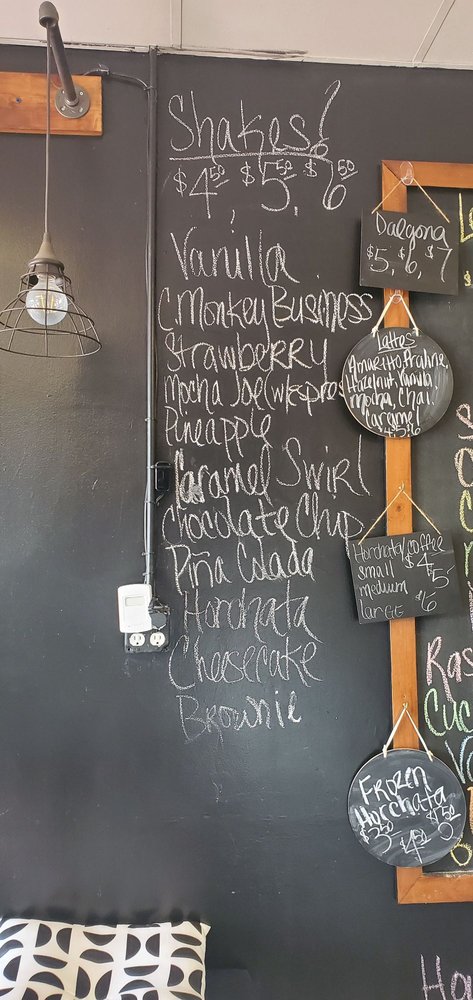 Shakes!
$4.50, $5.50, $6.50
Vanilla
C. Monkey Business
Strawberry
Mocha Joe (w/espres
Pineapple
Caramel Swirl
Chocolate Chip
Piña Colada
Horchata
Cheesecake
Brownie
Dalgona
$5, $6, $7
Lattes
Amaretto, Praline,
Hazelnut, Vanilla
Mocha, Chai,
Caramel
Horchata/coffee
small $4
medium $5
large $6
Frozen
Horchata
$3.50 $4.50 $5.50
Ras
Cuc